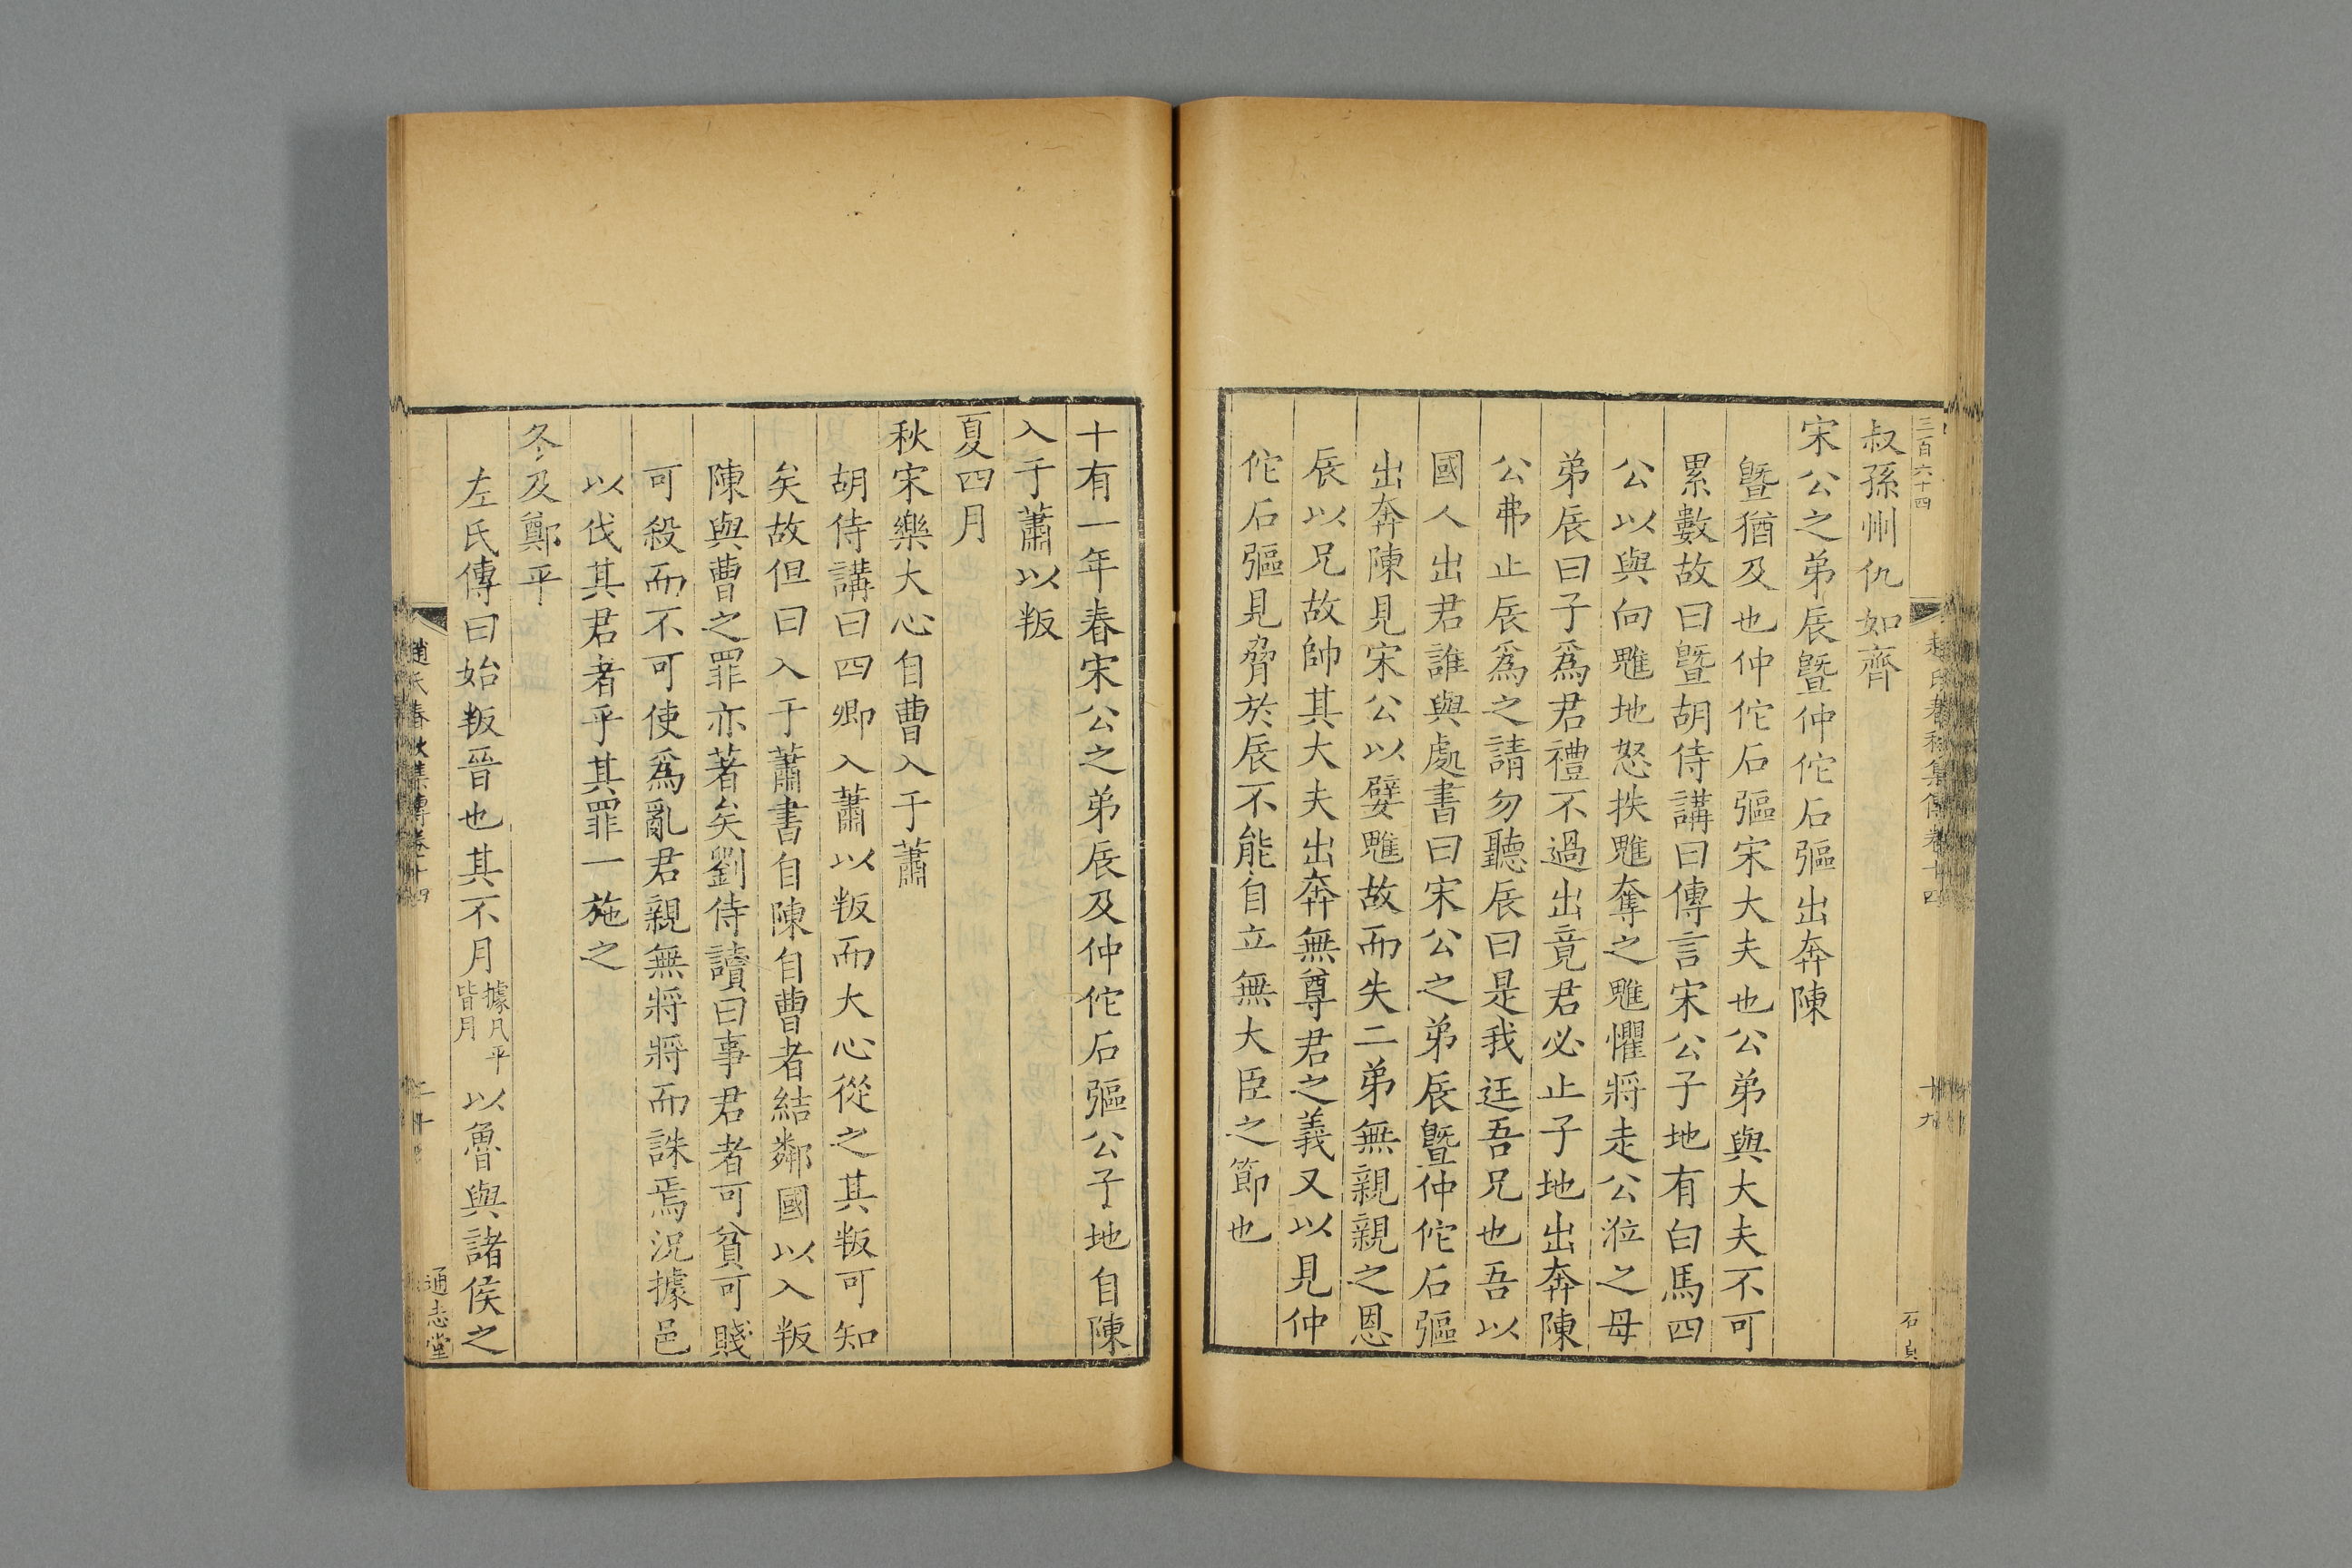 三百六十四
趙氏春秋集傳卷十四
十九
石貞
叔孫州仇如齊
宋公之弟辰曁仲佗石彄出奔陳
曁猶及也仲佗石彄宋大夫也公弟與大夫不可
累數故曰曁胡侍講曰傳言宋公子地有白馬四
公以與向魋地怒抶魋奪之魋懼將走公泣之母
弟辰曰子爲君禮不過出竟君必止子地出奔陳
公弗止辰爲之請勿聽辰曰是我迋吾兄也吾以
國人出君誰與處書曰宋公之弟辰曁仲佗石彄
出奔陳見宋公以嬖魋故而失二弟無親親之恩
辰以兄故帥其大夫出奔無尊君之義又以見仲
佗石彄見脅於辰不能自立無大臣之節也
十有一年春宋公之弟辰及仲佗石彄公子地自陳
入于蕭以叛
夏四月
秋宋樂大心自曹入于蕭
胡侍講曰四卿入蕭以叛而大心從之其叛可知
矣故但曰入于蕭書自陳自曹者結鄰國以入叛
陳與曹之罪亦著矣劉侍讀曰事君者可貧可賤
可殺而不可使爲亂君親無將將而誅焉況據邑
以伐其君者乎其罪一施之
冬及鄭平
左氏傳曰始叛晉也其不月據凡平皆月以魯與諸侯之
趙氏春秋集傳卷十四
二十
通志堂